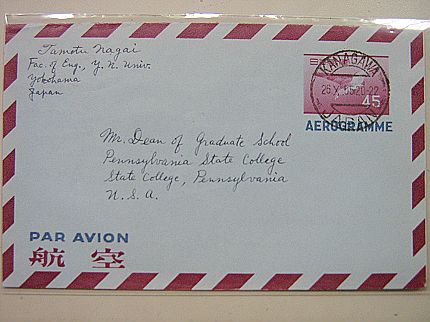 Tamotu Nagai
Fac. of Eng., Y. N. Univ.
Yokohama
Japan
KANAGAWA
26 X 65 20-22
JAPAN
日本
45
AEROGRAMME
Mr. Dean of Graduate School
Pennsylvania State College
State College, Pennsylvania
U. S. A.
PAR AVION
航空